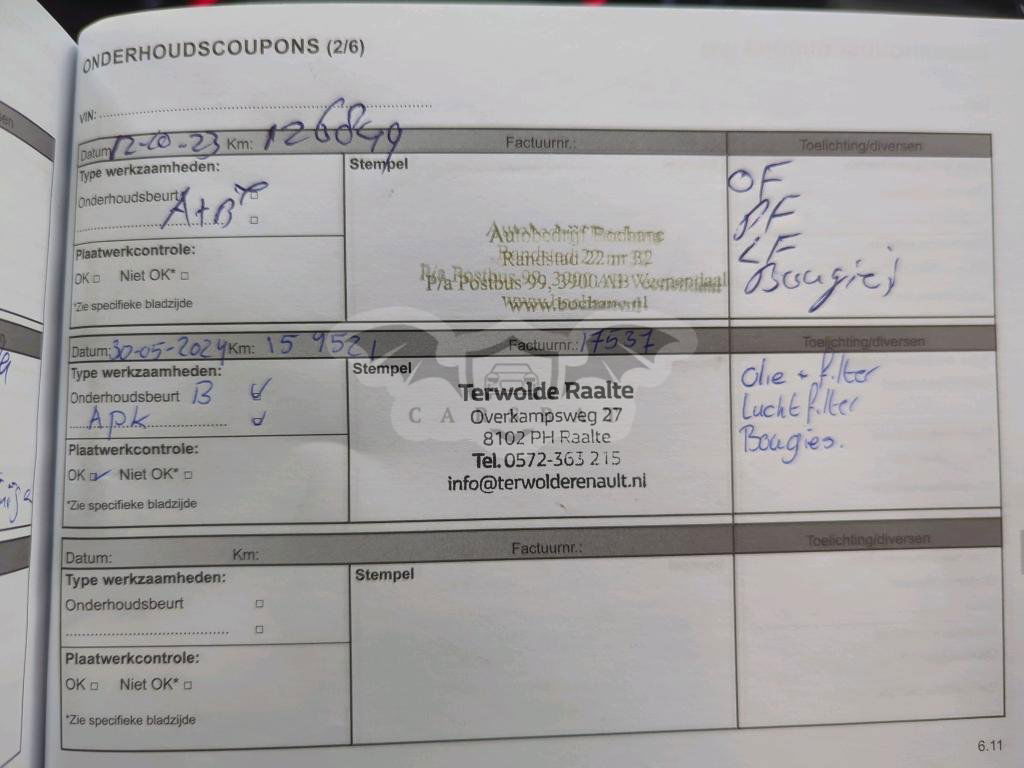 ONDERHOUDSCOUPONS (2/6)
VIN:
Datum: 12-10-23 Km: 126849 Factuurnr.: Toelichting/diversen
Type werkzaamheden:
Onderhoudsbeurt
A+B
Plaatwerkcontrole:
OK Niet OK*
*Zie specifieke bladzijde
Stempel
Autobedrijf Bochane
Randstad 22 nr 82
P/a Postbus 99, 3900 AB Veenendaal
www.bochane.nl
OF
LF
Bougies
Datum: 30-05-2024 Km: 159521 Factuurnr.: 17537 Toelichting/diversen
Type werkzaamheden:
Onderhoudsbeurt B
Apk
Plaatwerkcontrole:
OK Niet OK*
*Zie specifieke bladzijde
Stempel
Terwolde Raalte
Overkampsweg 27
8102 PH Raalte
Tel. 0572-363 215
info@terwolderenault.nl
Olie + filter
Luchtfilter
Bougies.
Datum: Km: Factuurnr.: Toelichting/diversen
Type werkzaamheden:
Onderhoudsbeurt
Plaatwerkcontrole:
OK Niet OK*
*Zie specifieke bladzijde
Stempel
6.11